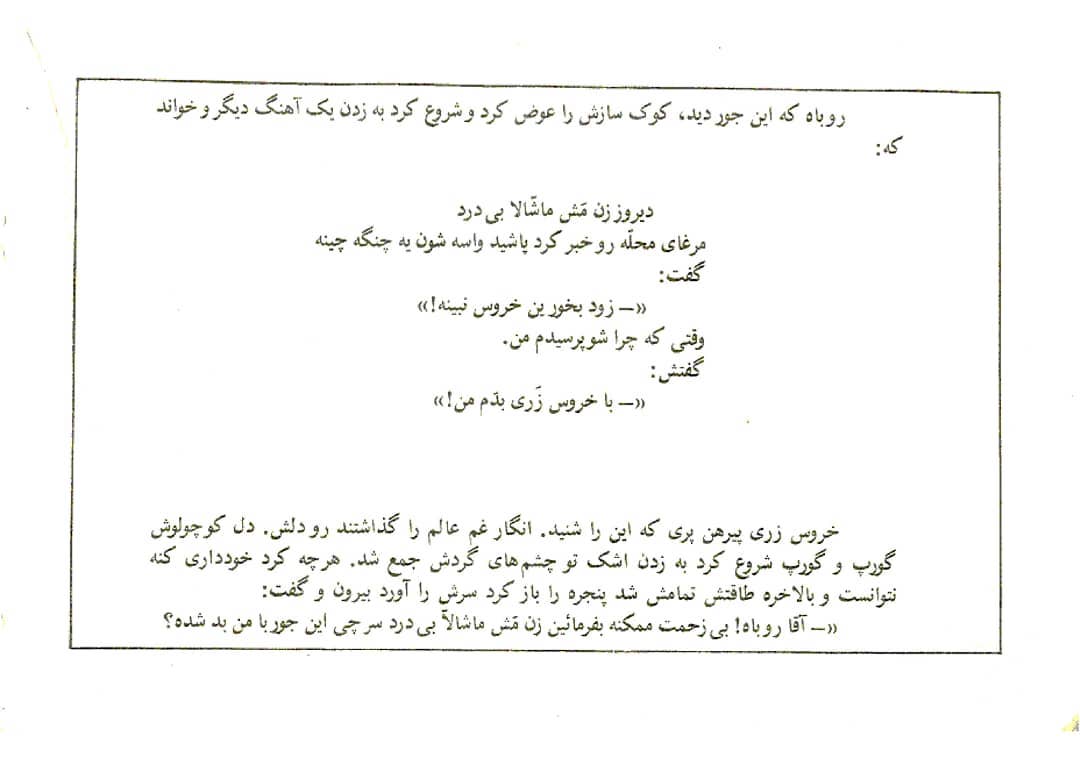 روباه که این جور دید، کوک سازش را عوض کرد و شروع کرد به زدن یک آهنگ دیگر و خواند
که:
دیروز زن مَش ماشّالا بی درد
مرغای محلّه رو خبر کرد پاشید واسه شون یه چنگه چینه
گفت:
«— زود بخورین خروس نبینه!»
وقتی که چرا شو پرسیدم من.
گفتش:
«— با خروس زَری بدّم من!»
خروس زری پیرهن پری که این را شنید. انگار غم عالم را گذاشتند رو دلش. دل کوچولوش
گورپ و گورپ شروع کرد به زدن اشک تو چشم‌های گردش جمع شد. هرچه کرد خودداری کنه
نتوانست و بالاخره طاقتش تمامش شد پنجره را باز کرد سرش را آورد بیرون و گفت:
«— آقا روباه! بی زحمت ممکنه بفرمائین زن مَش ماشالآ بی درد سر چی این جور با من بد شده؟